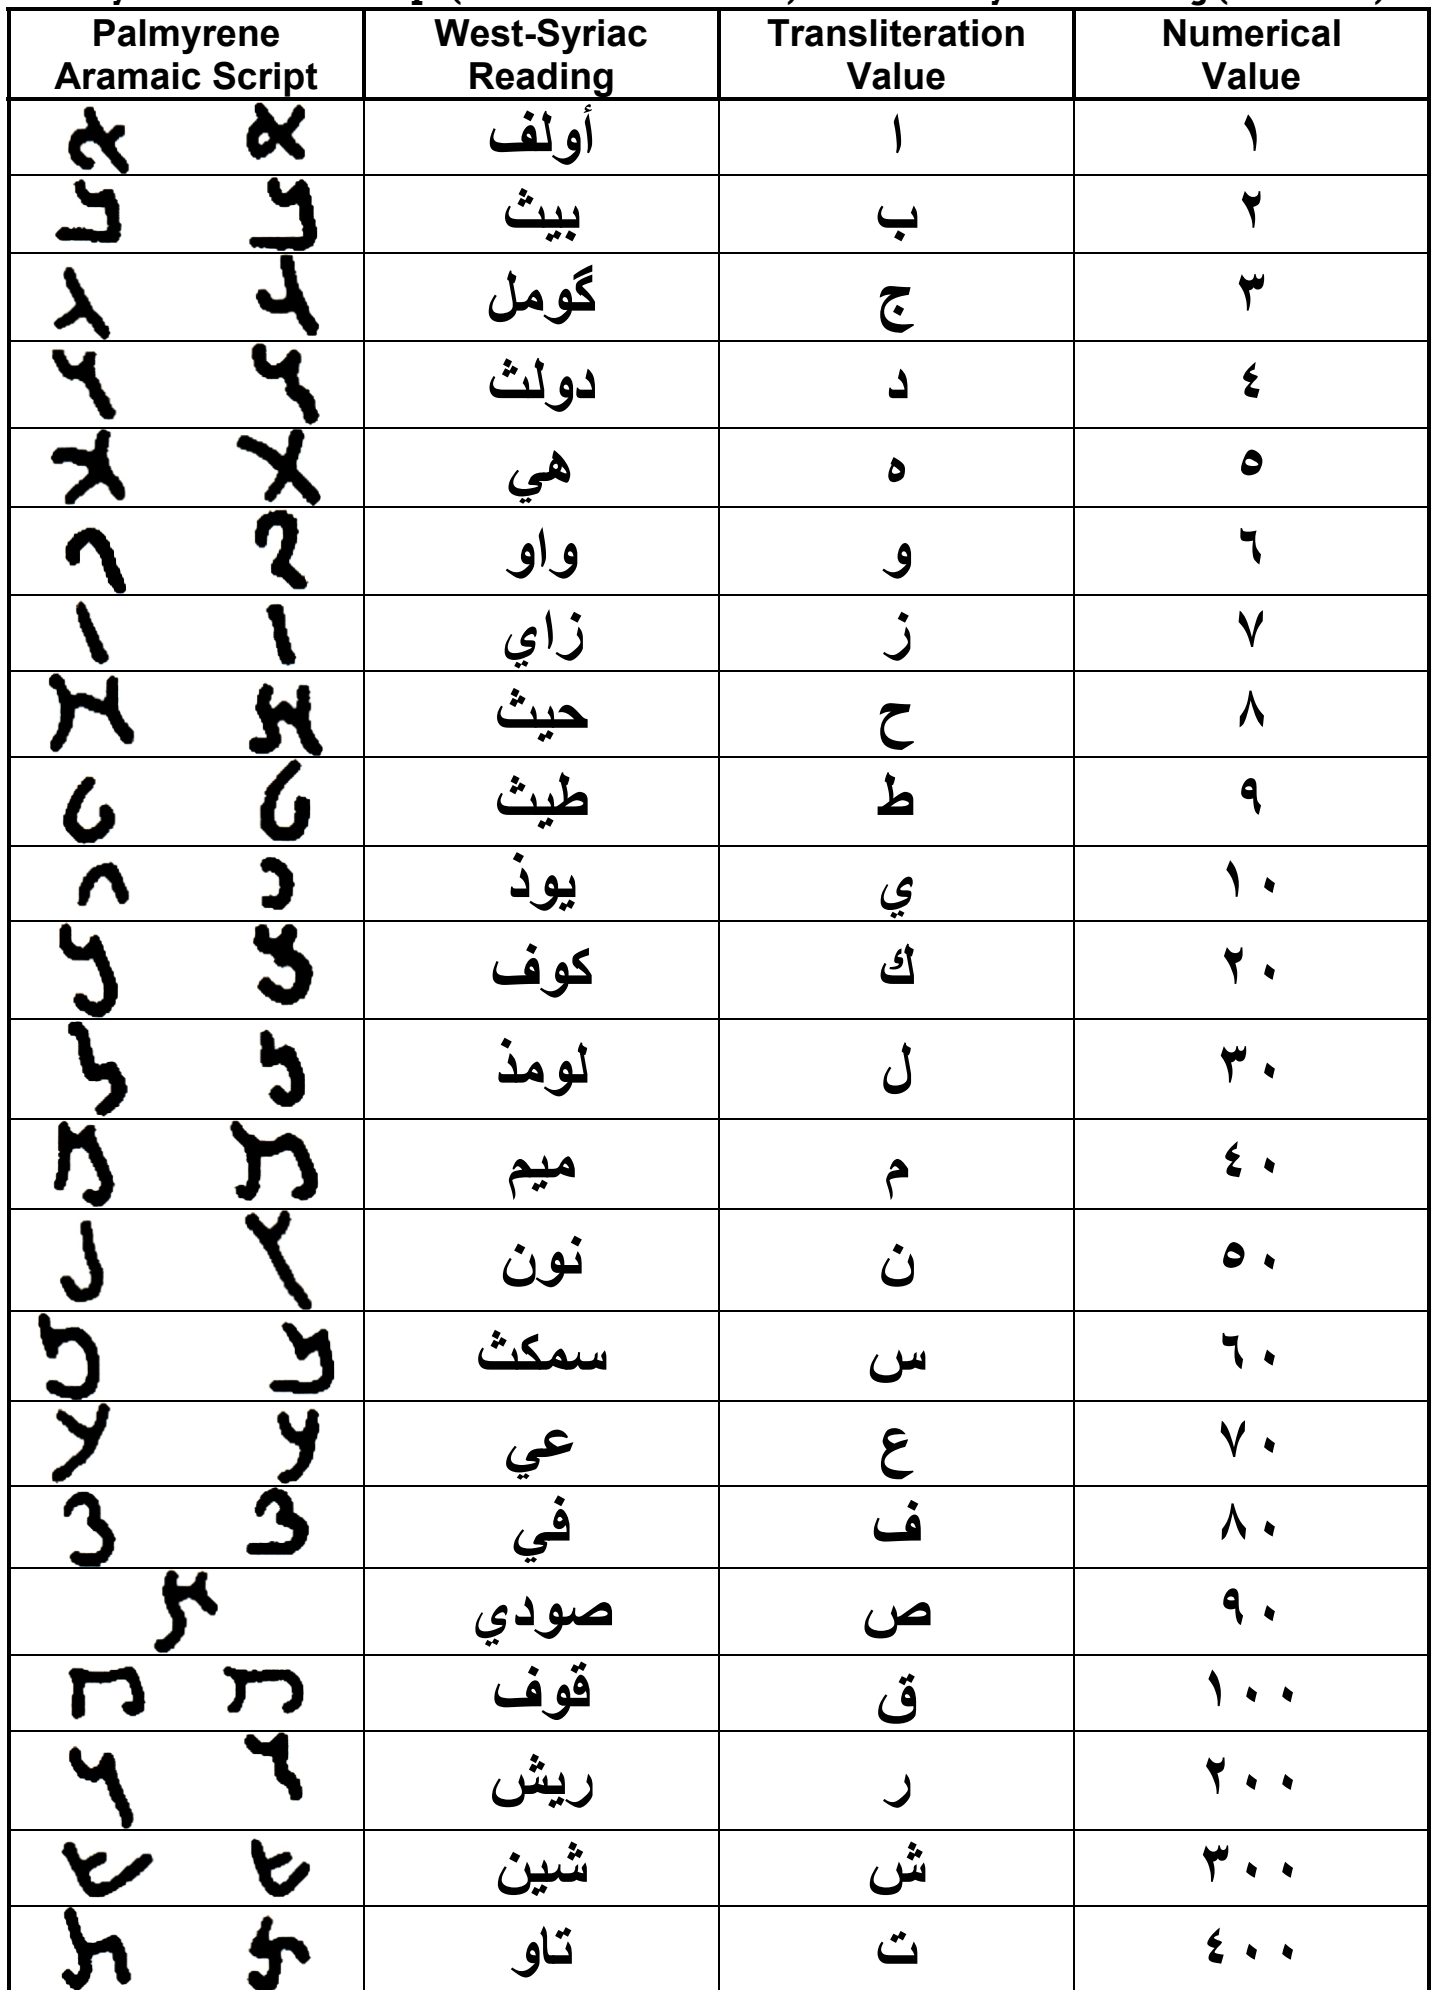 Palmyrene Aramaic Script | West-Syriac Reading | Transliteration Value | Numerical Value
𐡠 𐡠 | أولف | ا | ١
𐡡 𐡡 | بيث | ب | ٢
𐡢 𐡢 | گومل | ج | ٣
𐡣 𐡣 | دولث | د | ٤
𐡤 𐡤 | هي | ه | ٥
𐡥 𐡥 | واو | و | ٦
𐡦 𐡦 | زاي | ز | ٧
𐡧 𐡧 | حيث | ح | ٨
𐡨 𐡨 | طيث | ط | ٩
𐡩 𐡩 | يوذ | ي | ١٠
𐡪 𐡪 | كوف | ك | ٢٠
𐡫 𐡫 | لومذ | ل | ٣٠
𐡬 𐡬 | ميم | م | ٤٠
𐡮 𐡭 | نون | ن | ٥٠
𐡯 𐡯 | سمكث | س | ٦٠
𐡰 𐡰 | عي | ع | ٧٠
𐡱 𐡱 | في | ف | ٨٠
𐡲 | صودي | ص | ٩٠
𐡳 𐡳 | قوف | ق | ١٠٠
𐡴 𐡴 | ريش | ر | ٢٠٠
𐡵 𐡵 | شين | ش | ٣٠٠
𐡶 𐡶 | تاو | ت | ٤٠٠